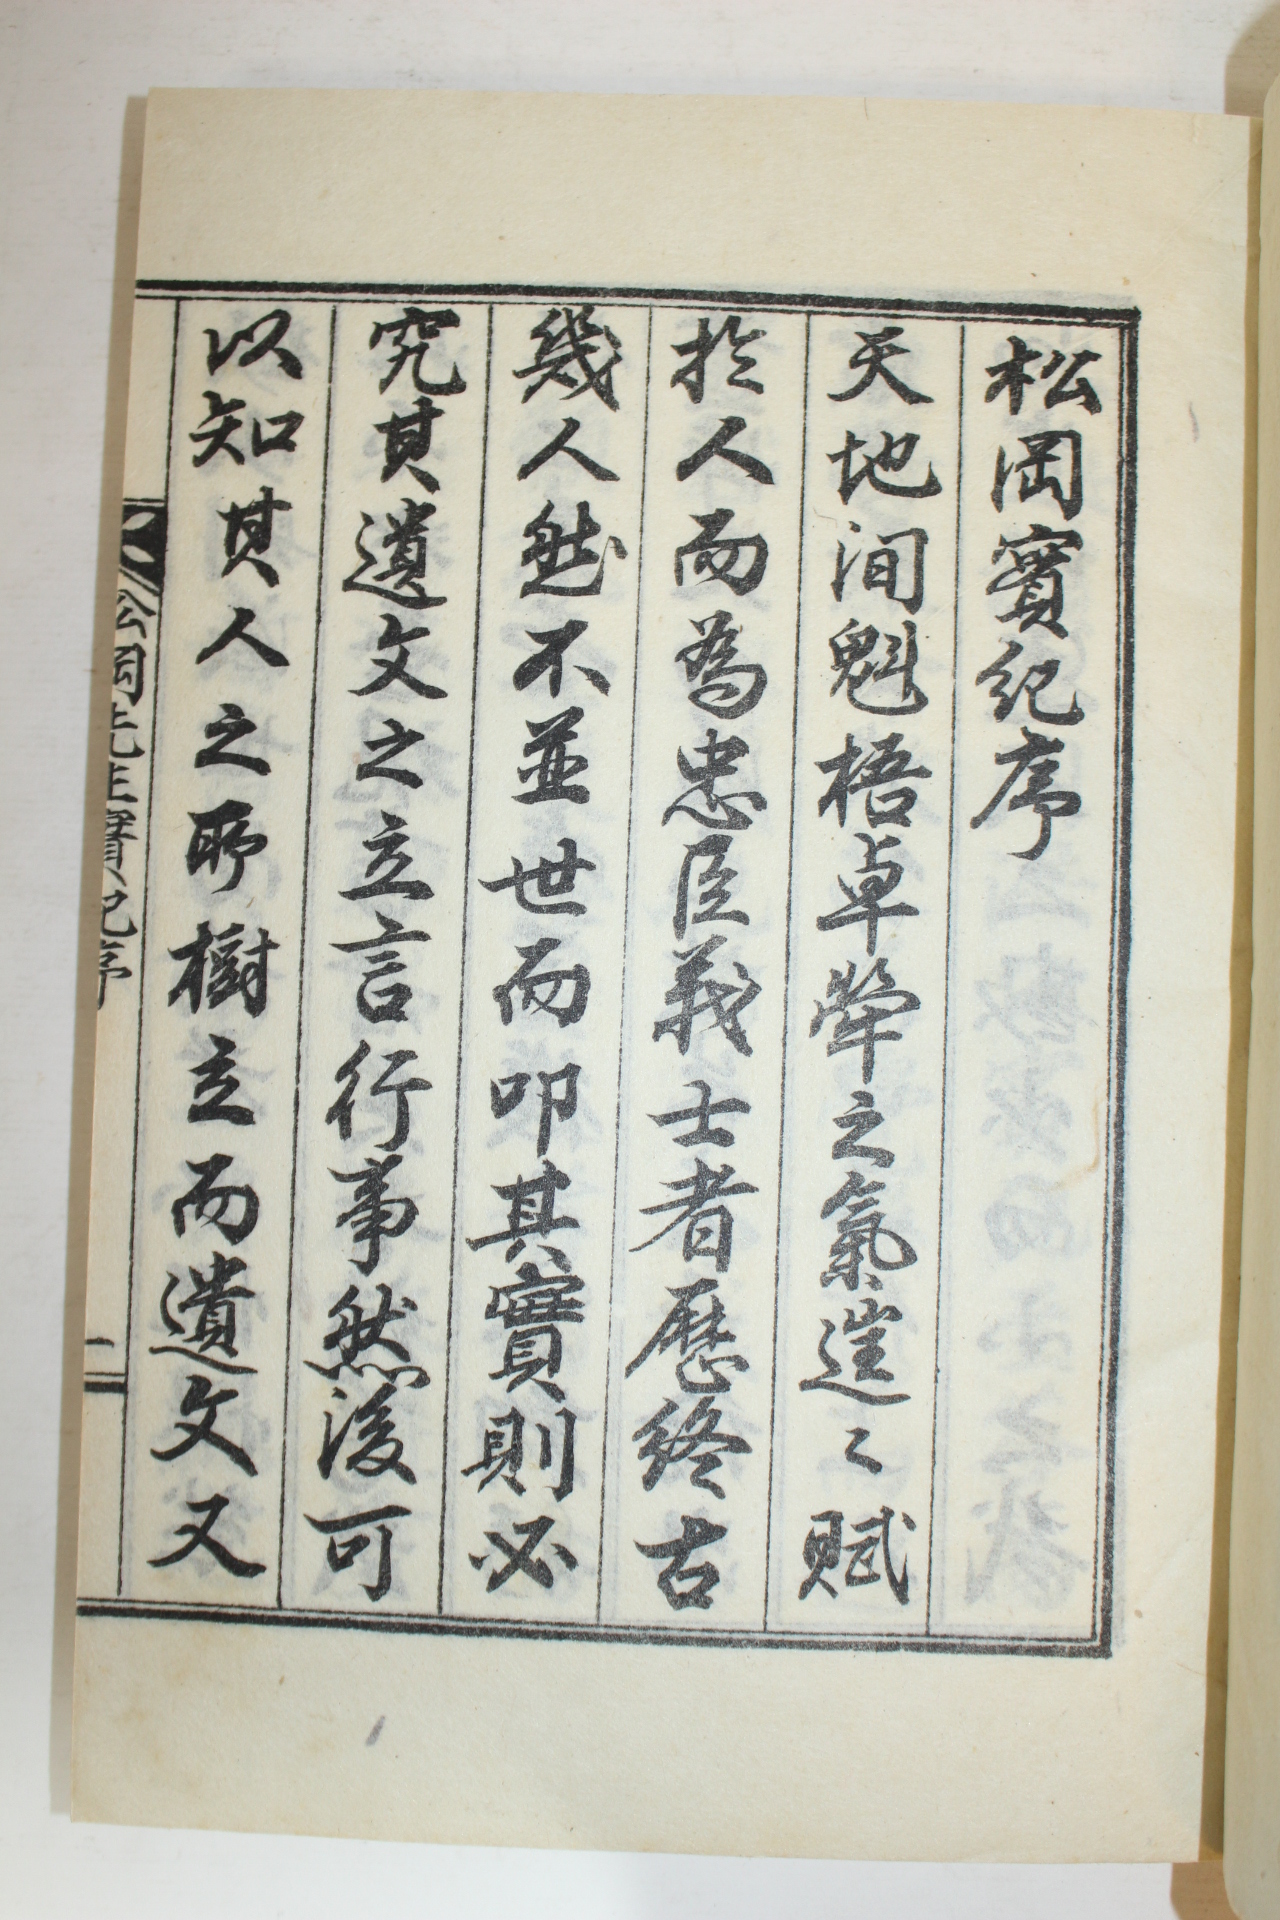 松岡實紀序
天地間魁梧卓犖之氣往〻賦
於人而爲忠臣義士者歷終古
幾人然不並世而叩其實則必
究其遺文之立言行事然後可
以知其人之所樹立而遺文又
松岡先生實紀序
一